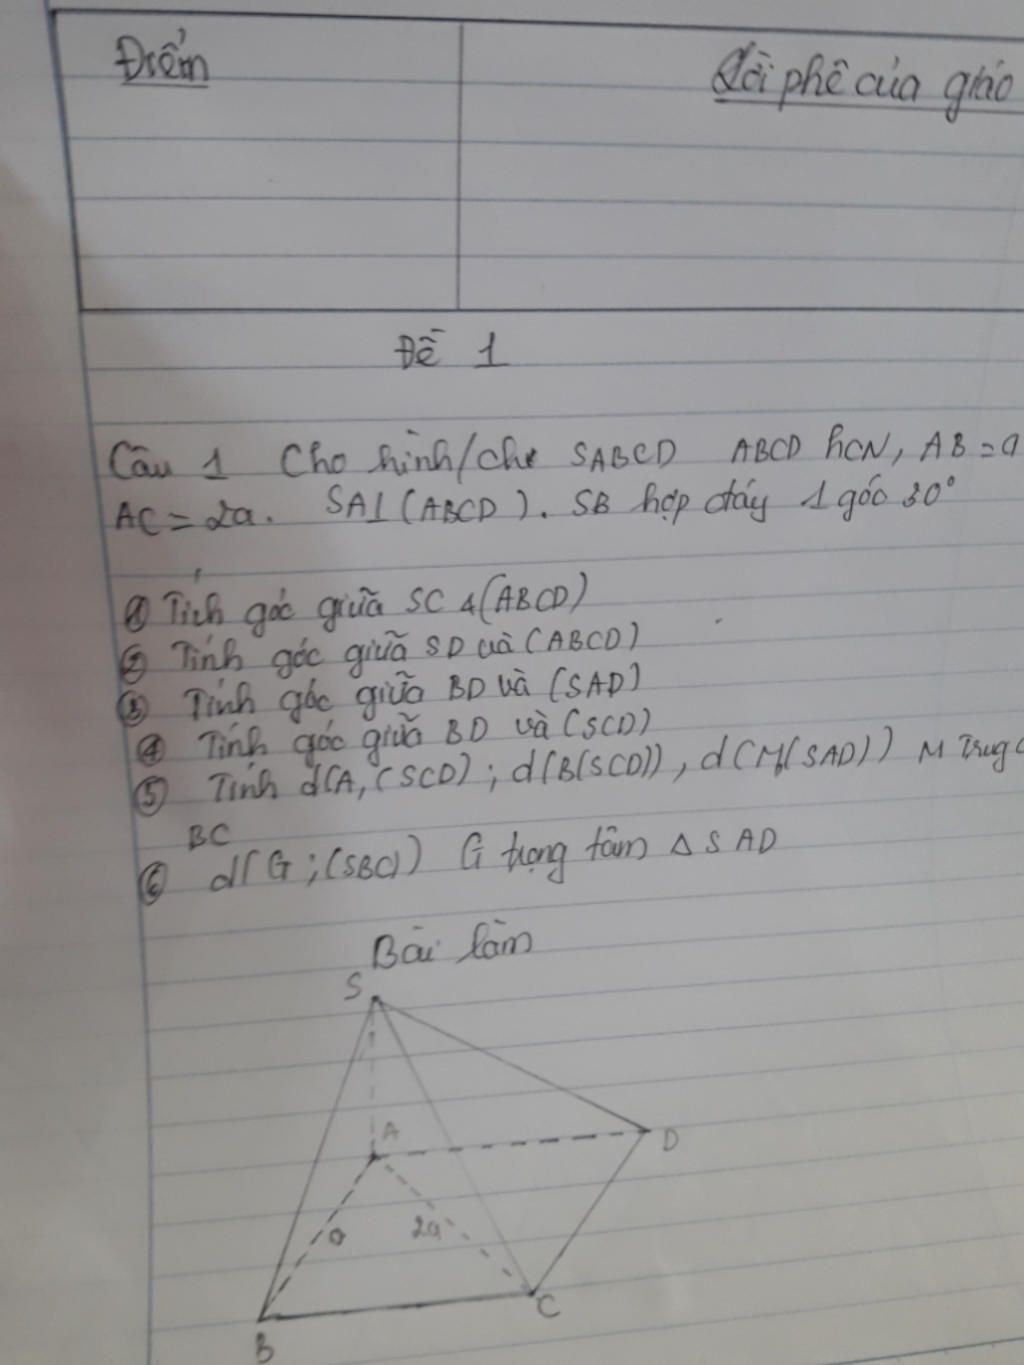 Điểm
Lời phê của giáo
Đề 1
Câu 1 Cho hình/chó SABCD ABCD hCN, AB = a
AC = 2a. SA⊥(ABCD). SB hợp đáy 1 góc 30°
① Tính góc giữa SC & (ABCD)
② Tính góc giữa SD và (ABCD)
③ Tính góc giữa BD và (SAD)
④ Tính góc giữa BD và (SCD)
⑤ Tính d(A, (SCD); d(B(SCD)), d(M,(SAD)) M trung
BC
⑥ d(G;(SBC)) G trọng tâm Δ SAD
Bài làm
S
A
D
a
2a
C
B